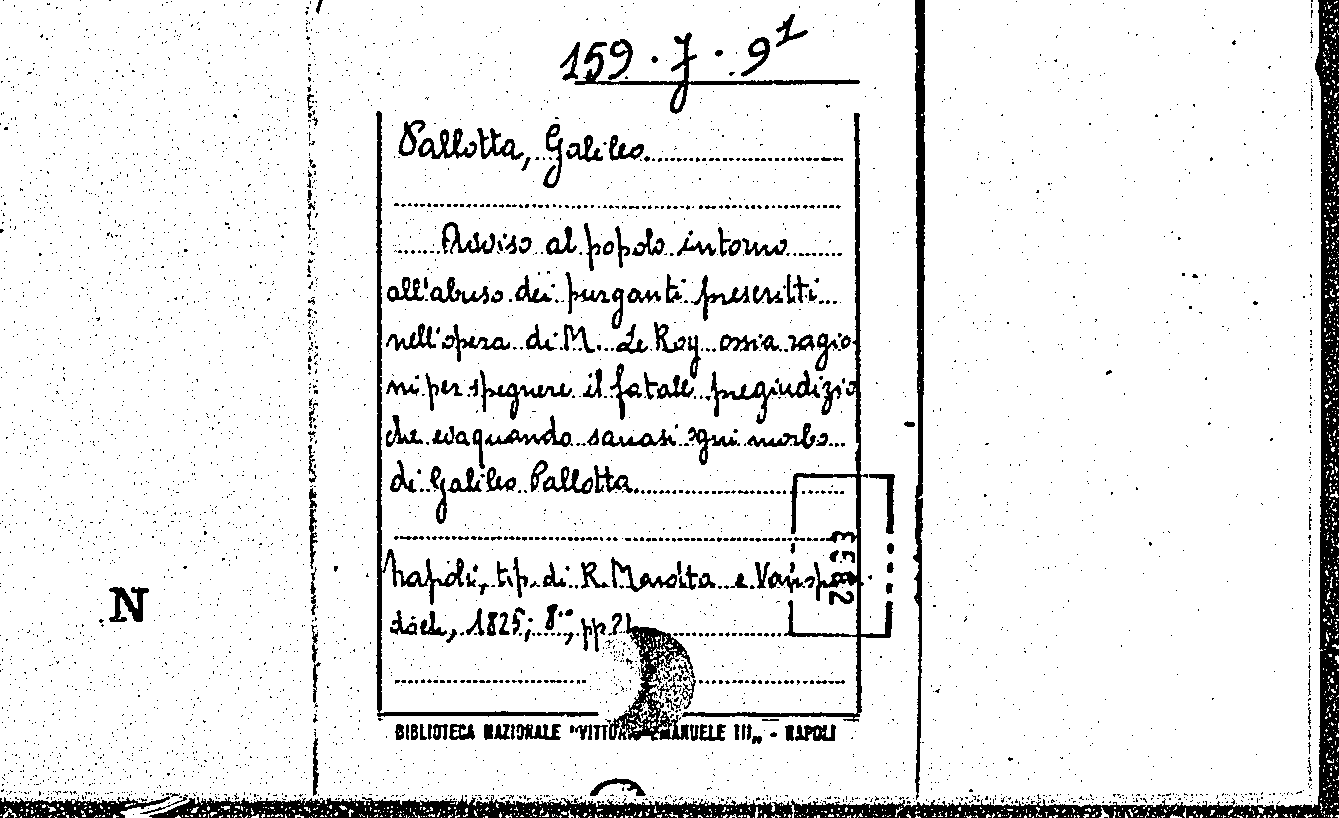 159 · J · 9¹
Pallotta, Galileo
Avviso al popolo intorno
all'abuso dei purganti prescritti
nell'opera di M. Le Roy ossia ragio
ni per spegnere il fatale pregiudizio
che evaquando sanasi ogni morbo
di Galileo Pallotta
Napoli, tip. di R. Marotta e Vanspan
doch, 1825; 8°, pp.
BIBLIOTECA NAZIONALE "VITTORIO EMANUELE III„ - NAPOLI
N